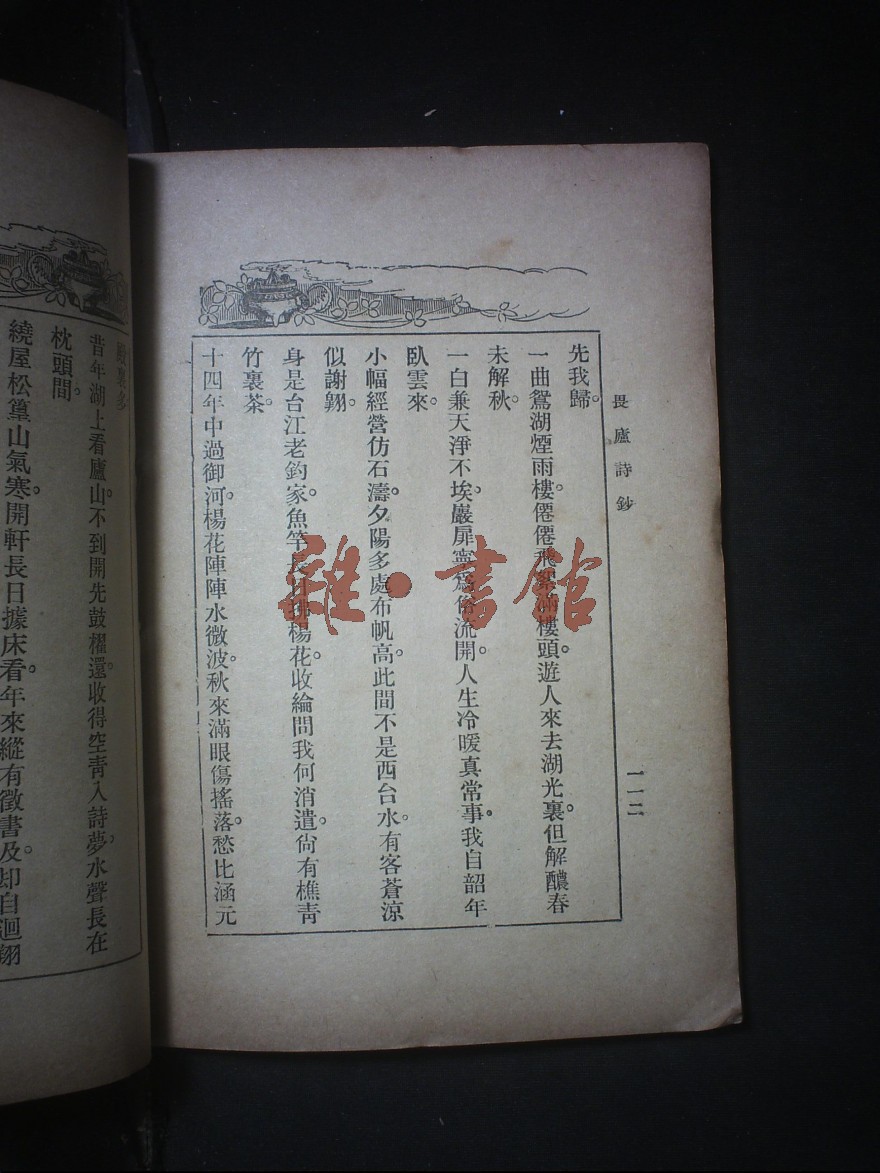 畏廬詩鈔
一一二
先我歸。
一曲鴛湖煙雨樓。僊僊飛絮滿樓頭。遊人來去湖光裏。但解醲春
未解秋。
一白兼天淨不埃。巖扉寧爲俗流開。人生冷暖真常事。我自韶年
臥雲來。
小幅經營仿石濤。夕陽多處布帆高。此間不是西台水。有客蒼涼
似謝翺。
身是台江老釣家。魚竿長日拂楊花。收綸問我何消遣。尙有樵靑
竹裏茶。
十四年中過御河。楊花陣陣水微波。秋來滿眼傷搖落。愁比涵元
殿裏多
昔年湖上看廬山。不到開先鼓櫂還。收得空靑入詩夢。水聲長在
枕頭間。
繞屋松篁山氣寒。開軒長日據床看。年來縱有徵書及。却自迴翔
雜·書館